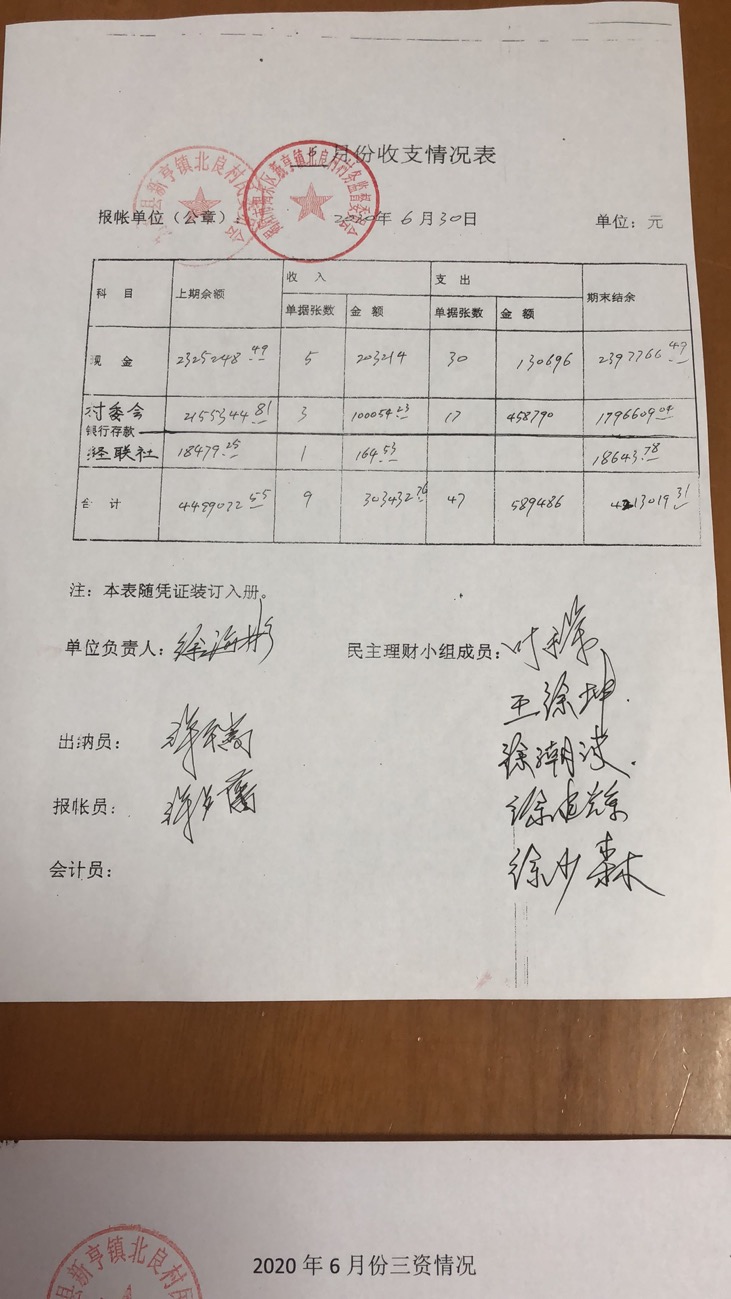 月份收支情况表
报帐单位（公章）：
2020年6月30日
单位：元
科 目 上期余额 收 入 支 出 期末结余
单据张数 金 额 单据张数 金 额
现 金 2325248.49 5 203214 30 130696 2397766.49
村委会 2155344.81 3 100054.23 17 458790 1796609.04
银行存款
经联社 18479.25 1 164.53 18643.78
合 计 4499072.55 9 303432.76 47 589486 4213019.31
注：本表随凭证装订入册。
单位负责人：徐海彬
民主理财小组成员：
王徐坤
出纳员：
徐潮波
报帐员：
会计员：
徐少森
县新亨镇北良村民
新亨镇北良村村务监督委员会
2020 年 6 月份三资情况
县新亨镇北良村民